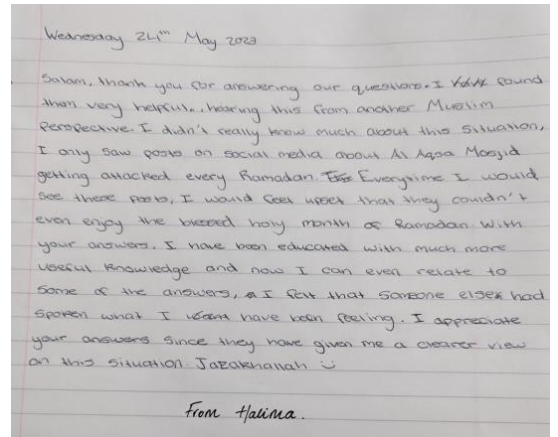 Wednesday 24th May 2023
Salam, thank you for answering our questions. I found
them very helpful, hearing this from another Muslim
Perspective. I didn't really know much about this situation,
I only saw posts on social media about Al Aqsa Masjid
getting attacked every Ramadan. Everytime I would
see these posts, I would feel upset that they couldn't
even enjoy the blessed holy month of Ramadan. With
your answers, I have been educated with much more
useful knowledge and now I can even relate to
some of the answers, I felt that someone else had
spoken what I have been feeling. I appreciate
your answers since they have given me a clearer view
on this situation. Jazakhallah
From Halima.